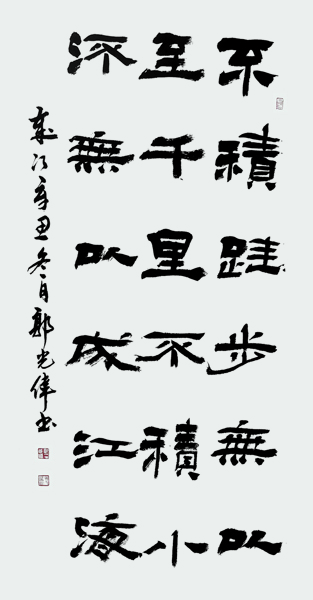 不積跬步無以
至千里不積小
流無以成江海
歲次辛丑冬月郭光偉書